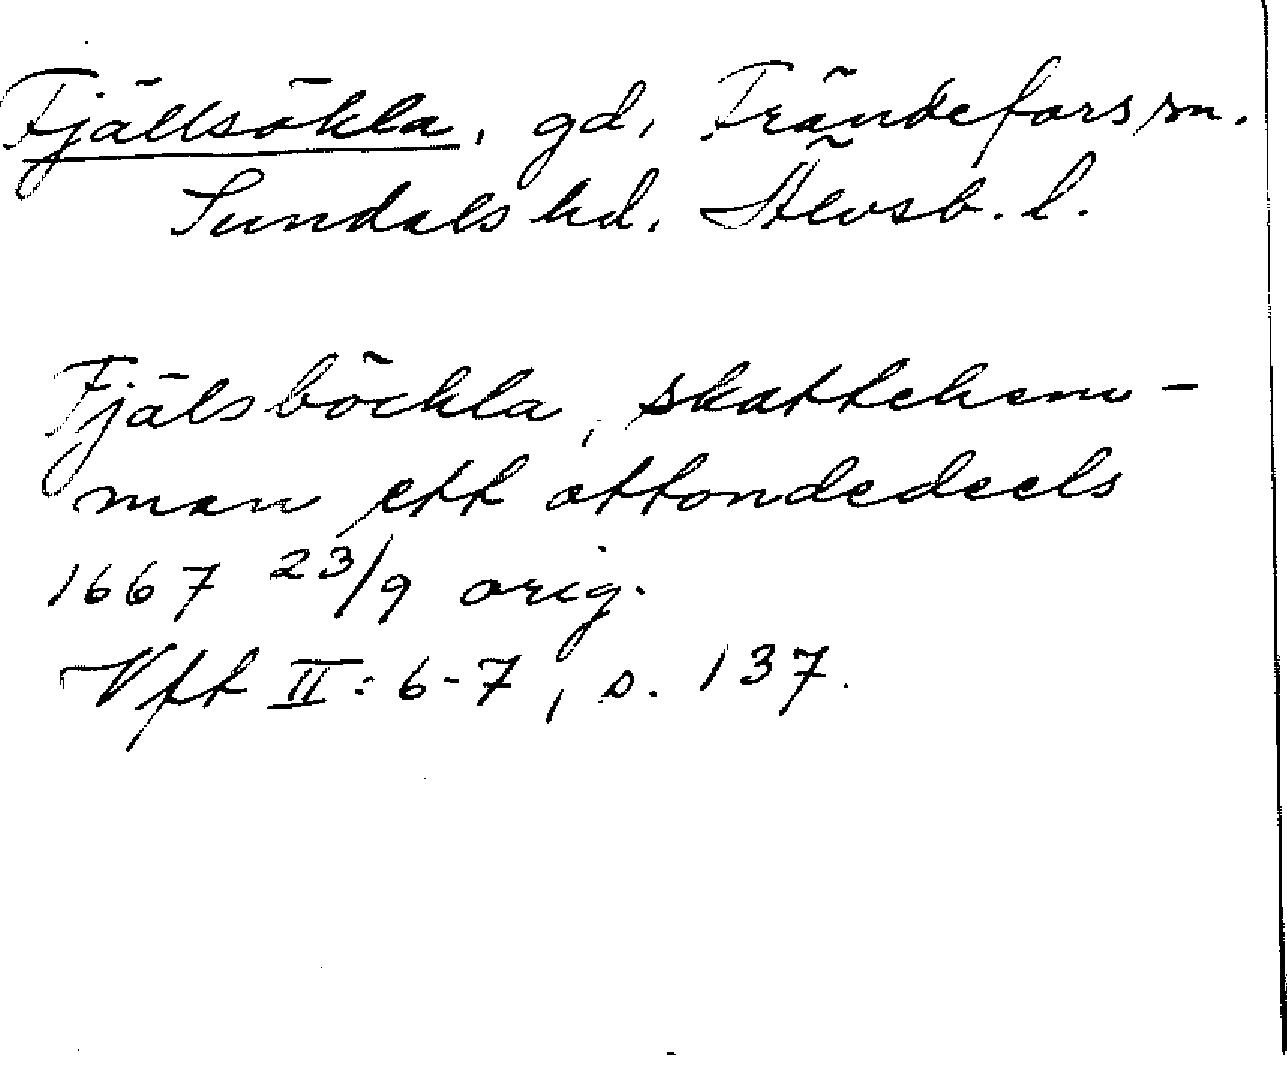 Fjällsökla, gd, Frändefors sn.
Sundals hd. Älvsb. l.
Fjälsböckla, skattehem-
man ett ottondedeels
1667 23/9 orig.
Vft II: 6-7, s. 137.